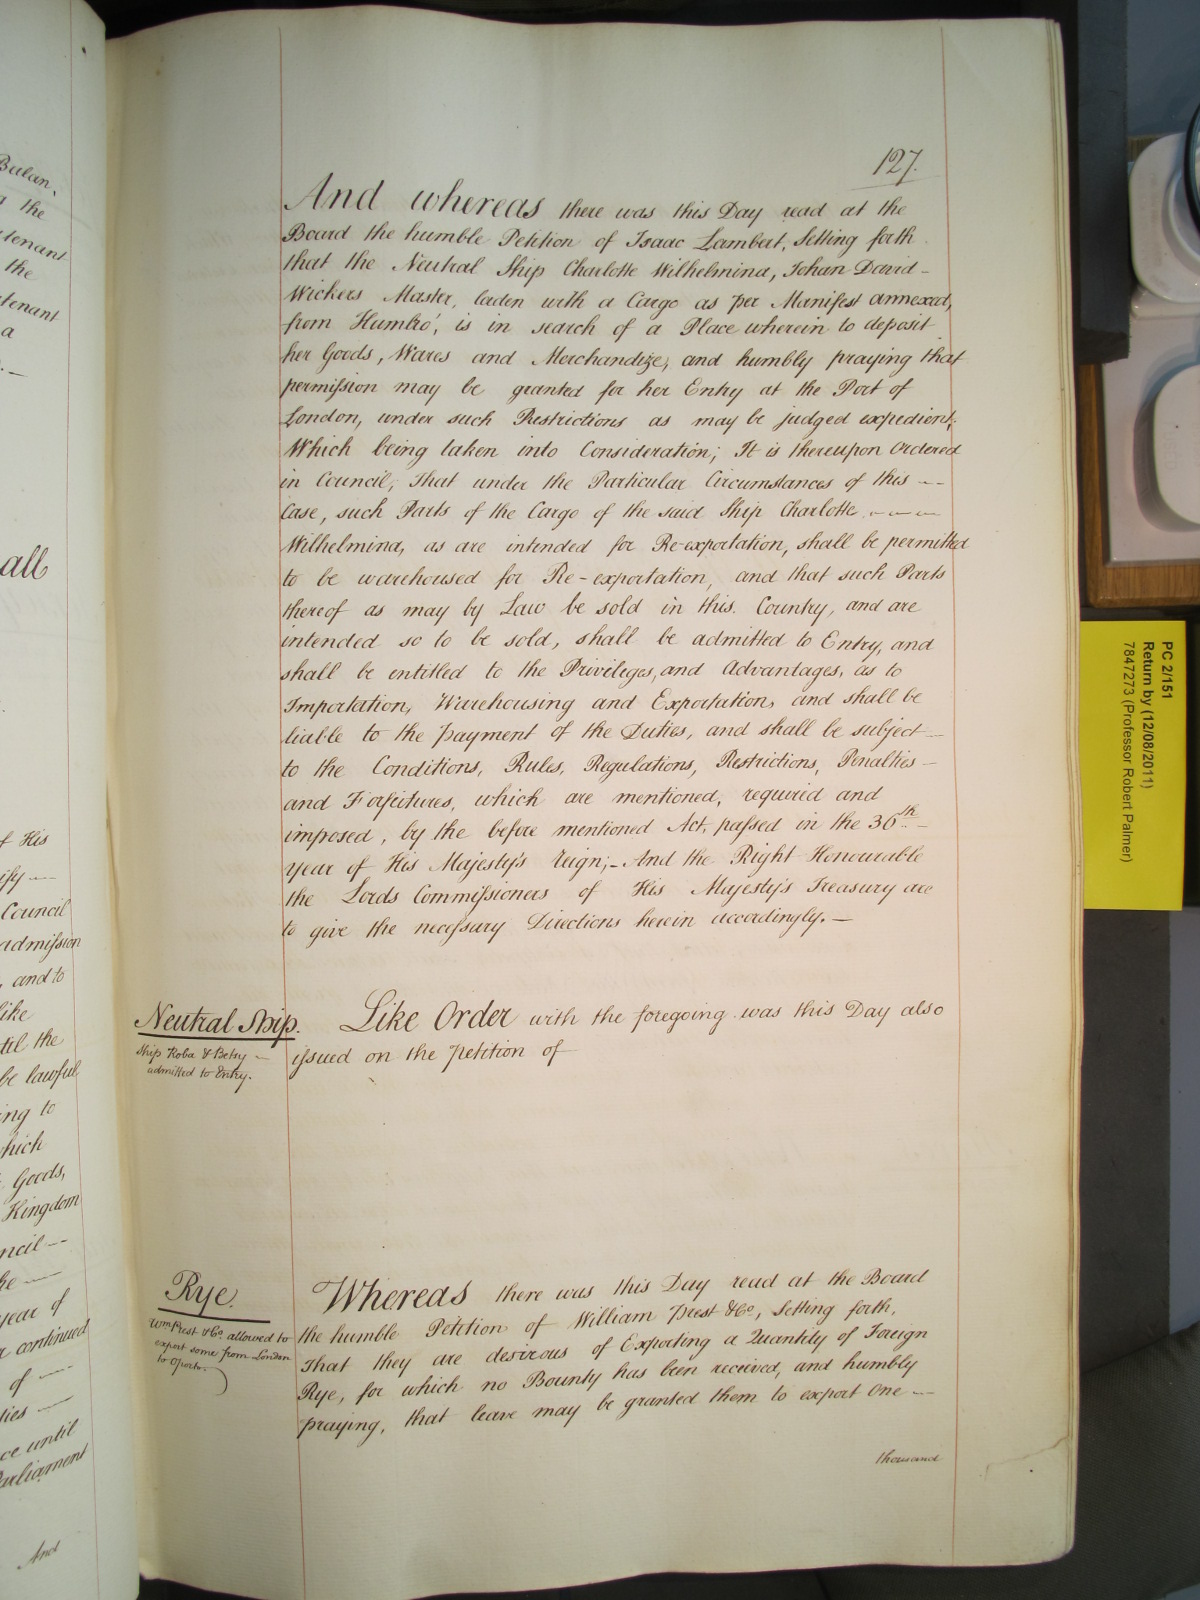 Balan,
the
tenant
the
tenant
a
all
of His
ify —
Council
admission
, and to
like
til the
be lawful
ing to
which
Goods,
Kingdom
ncil —
he —
year of
r continued
of —
ties —
ce until
Parliament
And
127.
And whereas there was this Day read at the
Board the humble Petition of Isaac Lambert, Setting forth
that the Neutral Ship Charlotte Wilhelmina, Johan David -
Wickers Master, laden with a Cargo as per Manifest annexed,
from Humbro', is in search of a Place wherein to deposit
her Goods, Wares and Merchandize, and humbly praying that
permission may be granted for her Entry at the Port of
London, under such Restrictions as may be judged expedient;
Which being taken into Consideration; It is thereupon Ordered
in Council, That under the Particular Circumstances of this --
Case, such Parts of the Cargo of the said Ship Charlotte ----
Wilhelmina, as are intended for Re-exportation, shall be permitted
to be warehoused for Re-exportation, and that such Parts
thereof as may by Law be sold in this Country, and are
intended so to be sold, shall be admitted to Entry, and
shall be entitled to the Privileges, and Advantages, as to
Importation, Warehousing and Exportation, and shall be
liable to the payment of the Duties, and shall be subject --
to the Conditions, Rules, Regulations, Restrictions, Penalties -
and Forfeitures, which are mentioned, required and
imposed, by the before mentioned Act, passed in the 36th. -
year of His Majesty's Reign; - And the Right Honourable
the Lords Commissioners of His Majesty's Treasury are
to give the necessary Directions herein accordingly. —
Neutral Ship.
Ship Roba & Betsy -
admitted to Entry.
Like Order with the foregoing was this Day also
issued on the Petition of
Rye.
Wm Prest & Co. allowed to
export some from London
to Oporto.
Whereas there was this Day read at the Board
the humble Petition of William Prest & Co, Setting forth,
That they are desirous of Exporting a Quantity of Foreign
Rye, for which no Bounty has been received, and humbly
praying, that leave may be granted them to export One --
thousand
PC 2/151
Return by (12/08/2011)
7847273 (Professor Robert Palmer)